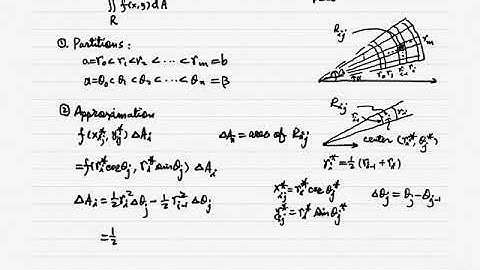 ∬ f(x,y) dA
R
R_ij
① Partitions:
a = r₀ < r₁ < r₂ < ... < r_m = b
α = θ₀ < θ₁ < θ₂ < ... < θ_n = β
② Approximation
f(x_ij*, y_ij*) ΔA_i
ΔA_i = area of R_ij
R_ij
center (r_i*, θ_j*)
= f(r_i* cos θ_j*, r_i* sin θ_j*) ΔA_i
r_i* = ½ (r_{i-1} + r_i)
ΔA_i = ½ r_i² Δθ_j − ½ r_{i-1}² Δθ_j
x_ij* = r_i* cos θ_j*
y_ij* = r_i* sin θ_j*
Δθ_j = θ_j − θ_{j-1}
= ½